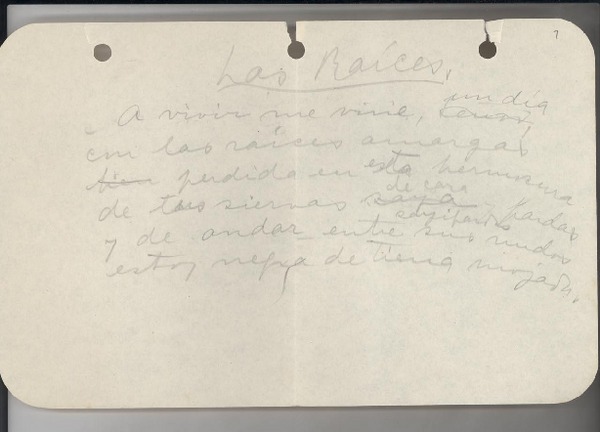 7
Las Raíces.
A vivir me vine, un día
con las raíces amargas
bien perdida en esta hermosura
de tus siervas de cara y pardas
y de andar entre sus nudos
estoy negra de tierra mojada.